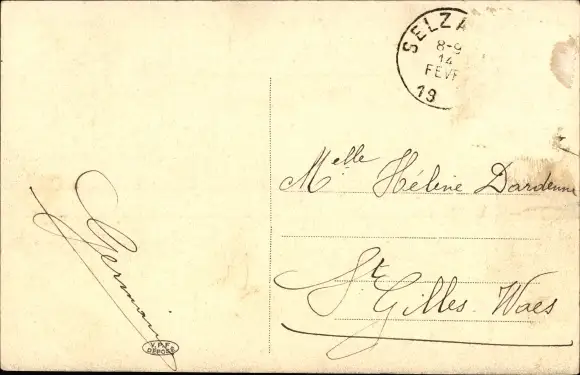 SELZA
8-9
14
FEVR
19
Melle Hélène Dardenne
St
Gilles. Waes
Germain
V.P.F.
DEPOSE